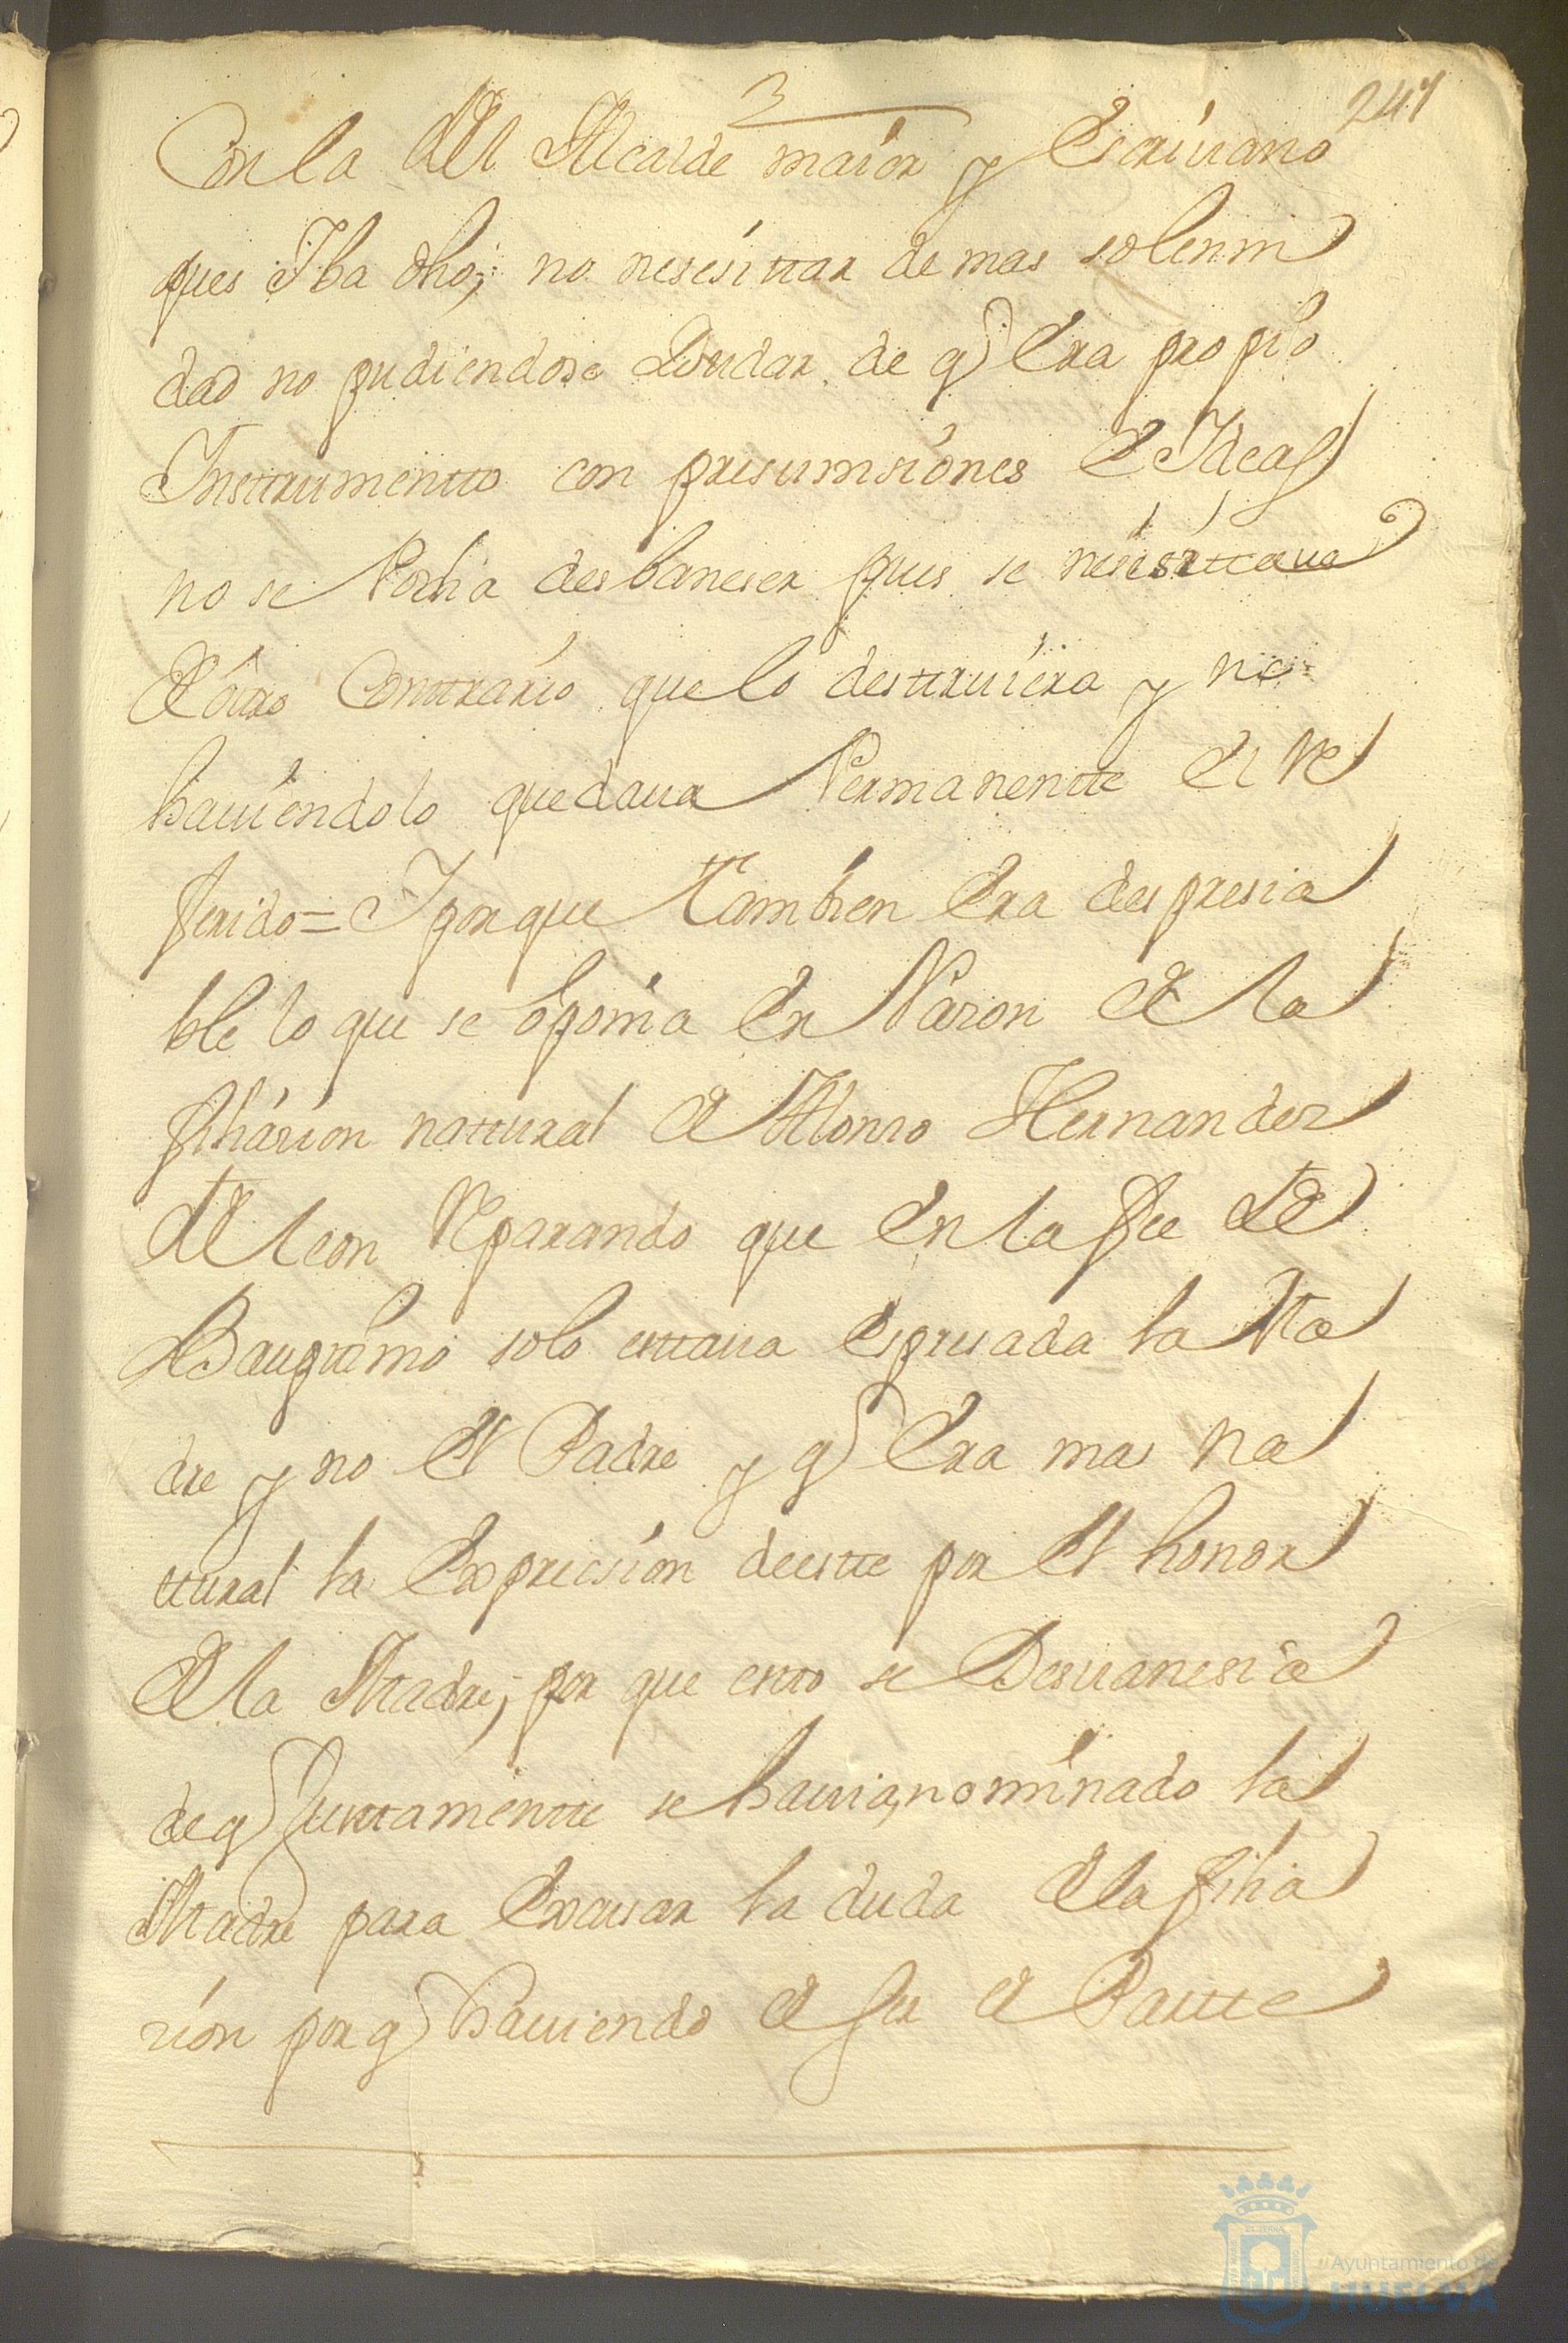 3
247
Con la del Alcalde maior y Escriuano
pues Iba dho; no nesesittar de mas solemni
dad no pudiendose Dudar de q Era propio
Insttrumentto con presumsiones e Ideas
no se Podia desbaneser pues se nesesittaua
de otro Conttrario que lo desttruiera y no
hauiendolo quedaua Permanentte el Re
ferido = Y porque ttambien Era despresia
ble lo que se oponia En Razon de la
filiazion nattural de Alonso Hernandez
de leon Reparando que En la fee de
Baupttismo solo esttaua Espresada la Ma
dre y no el Padre y q Era mas na
ttural la Exprecsion de estte por el honor
de la Madre; por que estto se Desuanesia
de q Junttamentte se hauia nominado la
Madre para Excusar la duda de la filia
zion por q hauiendo de ser de Partte
Ayuntamiento de
HUELVA